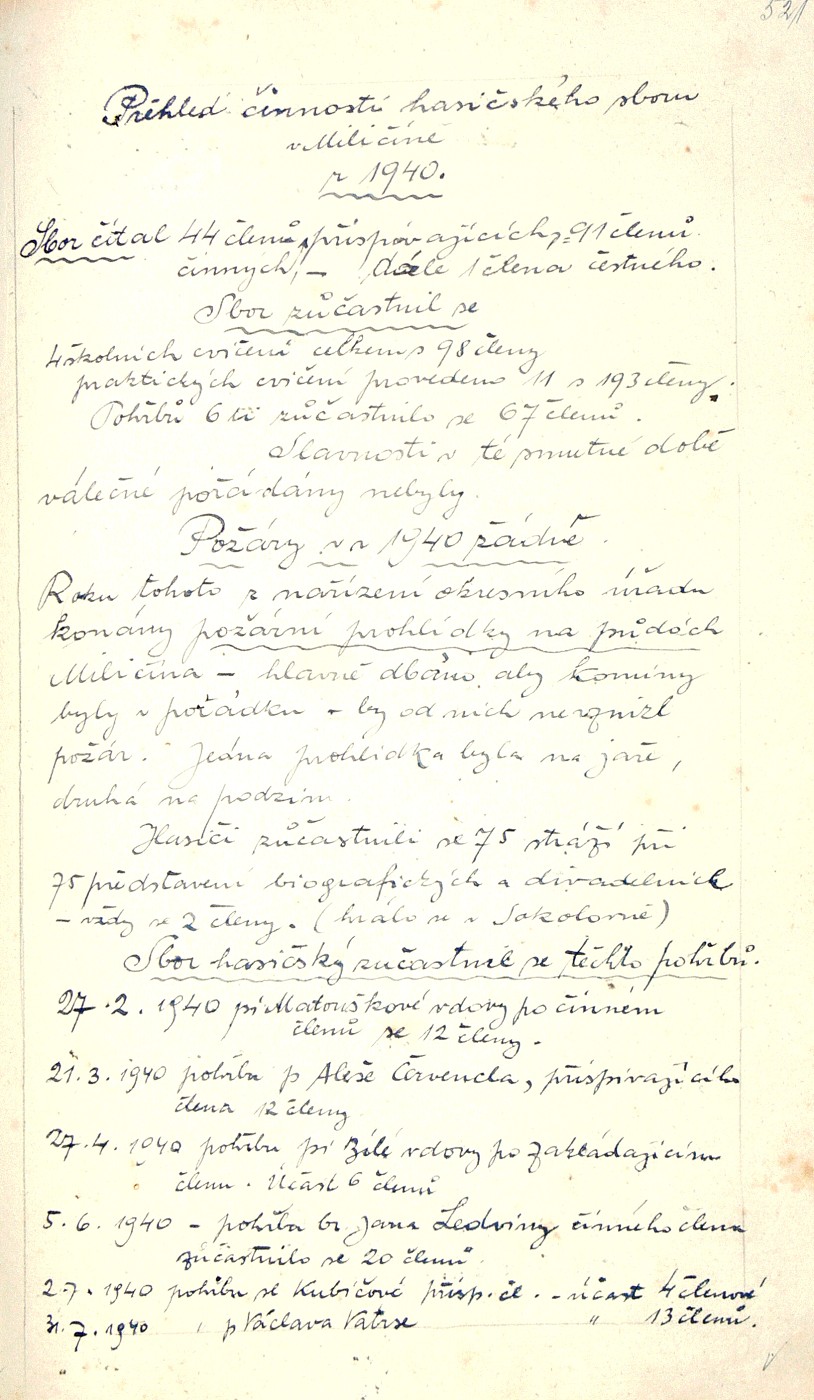 521
Přehled činnosti hasičského sboru
v Miličíně
r 1940.
Sbor čítal 44 členů přispívajících, 91 členů
činných, – dále 1 člena čestného.
Sbor zůčastnil se
4 školních cvičení celkem s 98 členy
praktických cvičení provedeno 11 s 193 členy.
Pohřbů 6ti zůčastnilo se 67 členů.
Slavnosti v té smutné době
válečné pořádány nebyly.
Požáry v r 1940 žádné.
Roku tohoto z nařízení okresního úřadu
konány požární prohlídky na půdách
Miličína – hlavně dbáno, aby komíny
byly v pořádku – by od nich nevznikl
požár. Jedna prohlídka byla na jaře,
druhá na podzim.
Hasiči zůčastnili se 75 stráží při
75 představení biografických a divadelních
– vždy se 2 členy. (hrálo se v Sokolovně)
Sbor hasičský zučastnil se těchto pohřbů.
27.2. 1940 pí Matouškové vdovy po činném
členů se 12 členy.
21.3. 1940 pohřbu p Aleše Červencla, přispívajícího
člena 12 členy
27.4. 1940 pohřbu pí Bílé vdovy po zakládajícím
členu. Účast 6 členů
5.6. 1940 – pohřbu br. Jana Ledviny činného člena
zůčastnilo se 20 členů.
2.7. 1940 pohřbu sl Kubíčové přísp. čl. – účast 4 členové
31.7. 1940 " p Václava " 13 členů.